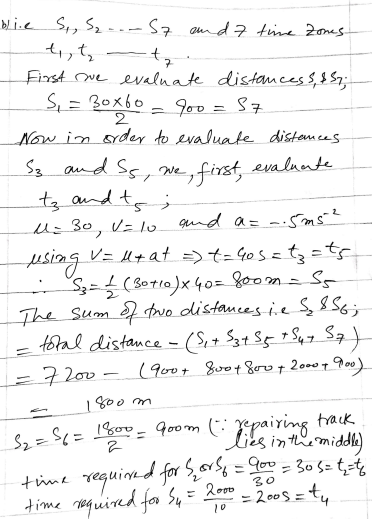 b) i.e S₁, S₂ --- S7 and 7 time zones
t₁, t₂ — t7
First we evaluate distances S₁ & S7;
S₁ = 30x60/2 = 900 = S7
Now in order to evaluate distances
S3 and S5, we, first, evaluate
t3 and t5 ;
u = 30, V = 10 and a = -.5ms⁻²
using V = u + at ⇒ t = 40s = t3 = t5
∴ S3 = 1/2 (30+10) x 40 = 800m = S5
The sum of two distances i.e S2 & S6;
= total distance - (S₁ + S3 + S5 + S4 + S7)
= 7200 - (900 + 800 + 800 + 2000 + 900)
= 1800 m
S2 = S6 = 1800/2 = 900m (∵ repairing track lies in the middle)
time required for S2 or S6 = 900/30 = 30s = t2 = t6
time required for S4 = 2000/10 = 200s = t4